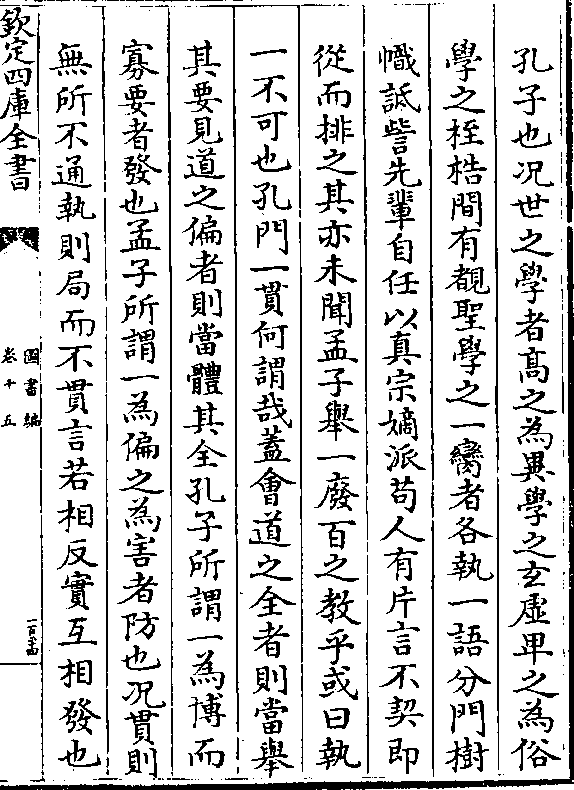 孔子也况世之學者髙之為異學之𤣥虚卑之為俗
學之桎梏間有覩聖學之一臠者各執一語分門樹
幟詆訾先輩自任以真宗嫡派苟人有片言不契即
從而排之其亦未聞孟子舉一廢百之教乎或曰執
一不可也孔門一貫何謂哉蓋會道之全者則當舉
其要見道之偏者則當體其全孔子所謂一為博而
寡要者發也孟子所謂一為偏之為害者防也况貫則
無所不通執則局而不貫言若相反實互相發也
欽定四庫全書
圖書編
卷十五